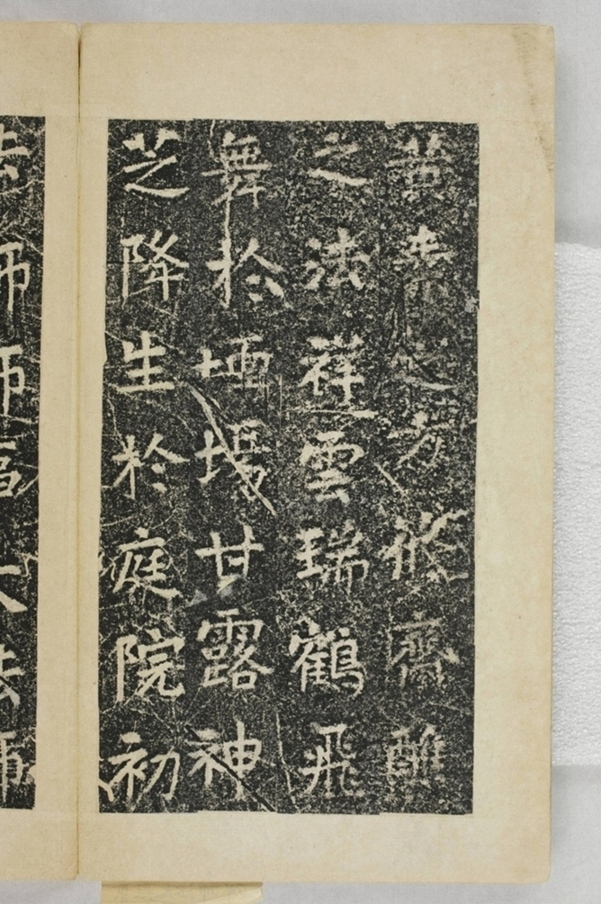 黄素之方修齋醮
之法祥雲瑞鶴飛
舞於壇場甘露神
芝降生於庭院初